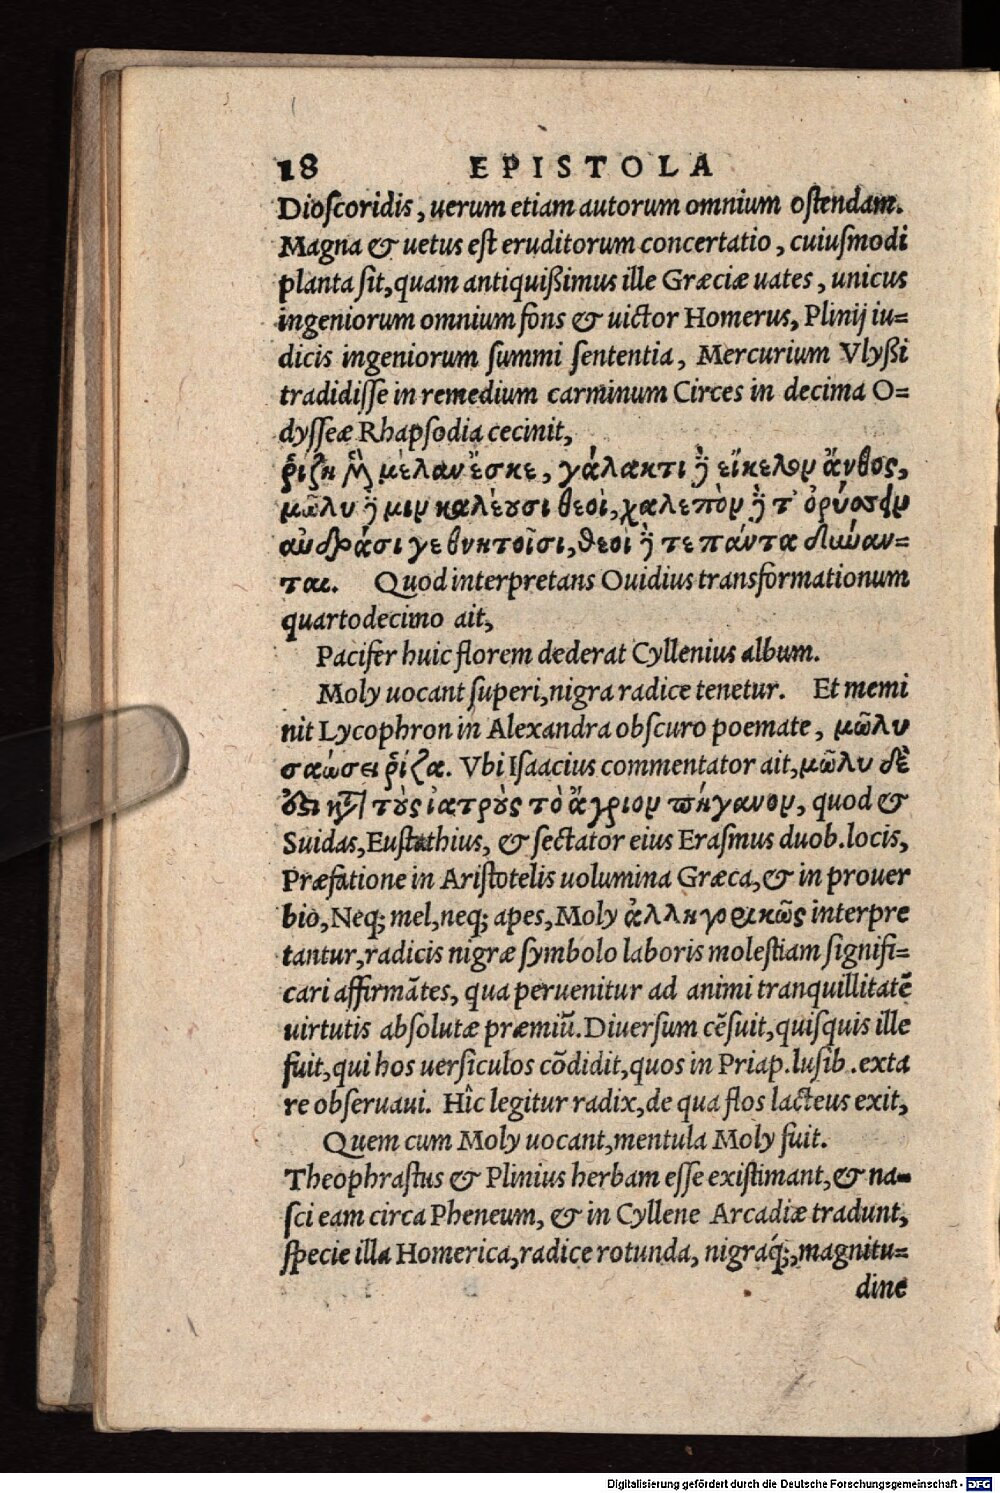 18 EPISTOLA
Dioscoridis, uerum etiam autorum omnium ostendam.
Magna & uetus est eruditorum concertatio, cuiusmodi
planta sit, quam antiquißimus ille Græciæ uates, unicus
ingeniorum omnium fons & uictor Homerus, Plinij iu=
dicis ingeniorum summi sententia, Mercurium Vlyßi
tradidisse in remedium carminum Circes in decima O=
dysseæ Rhapsodia cecinit,
ῥίζῃ μὴν μὲλαν ἔσκε, γάλακτι δὲ εἴκελον ἄνθος,
μῶλυ δὲ μιν καλέουσι θεοὶ, χαλεπὸν δὲ τ' ὀρύσσειν
ἀνδράσι γε θνητοῖσι, θεοὶ δὲ τε πάντα δύναν=
ται. Quod interpretans Ouidius transformationum
quartodecimo ait,
Pacifer huic florem dederat Cyllenius album.
Moly uocant superi, nigra radice tenetur. Et memi
nit Lycophron in Alexandra obscuro poemate, μῶλυ
σαώσει ῥίζα. Vbi Isaacius commentator ait, μῶλυ δὲ
ὅτι κατὰ τοὺς ἰατροὺς τὸ ἄγριον πήγανον, quod &
Suidas, Eustathius, & sectator eius Erasmus duob. locis,
Præfatione in Aristotelis uolumina Græca, & in prouer
bio, Neq; mel, neq; apes, Moly ἀλληγορικῶς interpre
tantur, radicis nigræ symbolo laboris molestiam signifi=
cari affirmātes, qua peruenitur ad animi tranquillitatē
uirtutis absolutæ præmiū. Diuersum cēsuit, quisquis ille
fuit, qui hos uersiculos cōdidit, quos in Priap. lusib. exta
re obseruaui. Hîc legitur radix, de qua flos lacteus exit,
Quem cum Moly uocant, mentula Moly fuit.
Theophrastus & Plinius herbam esse existimant, & na=
sci eam circa Pheneum, & in Cyllene Arcadiæ tradunt,
specie illa Homerica, radice rotunda, nigraq́;, magnitu=
dine
Digitalisierung gefördert durch die Deutsche Forschungsgemeinschaft - DFG